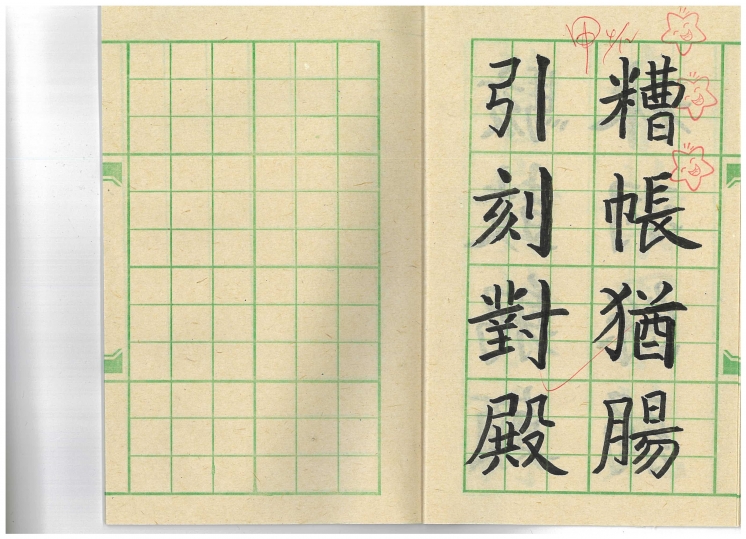 糟帳猶腸
引刻對殿
甲 4/12